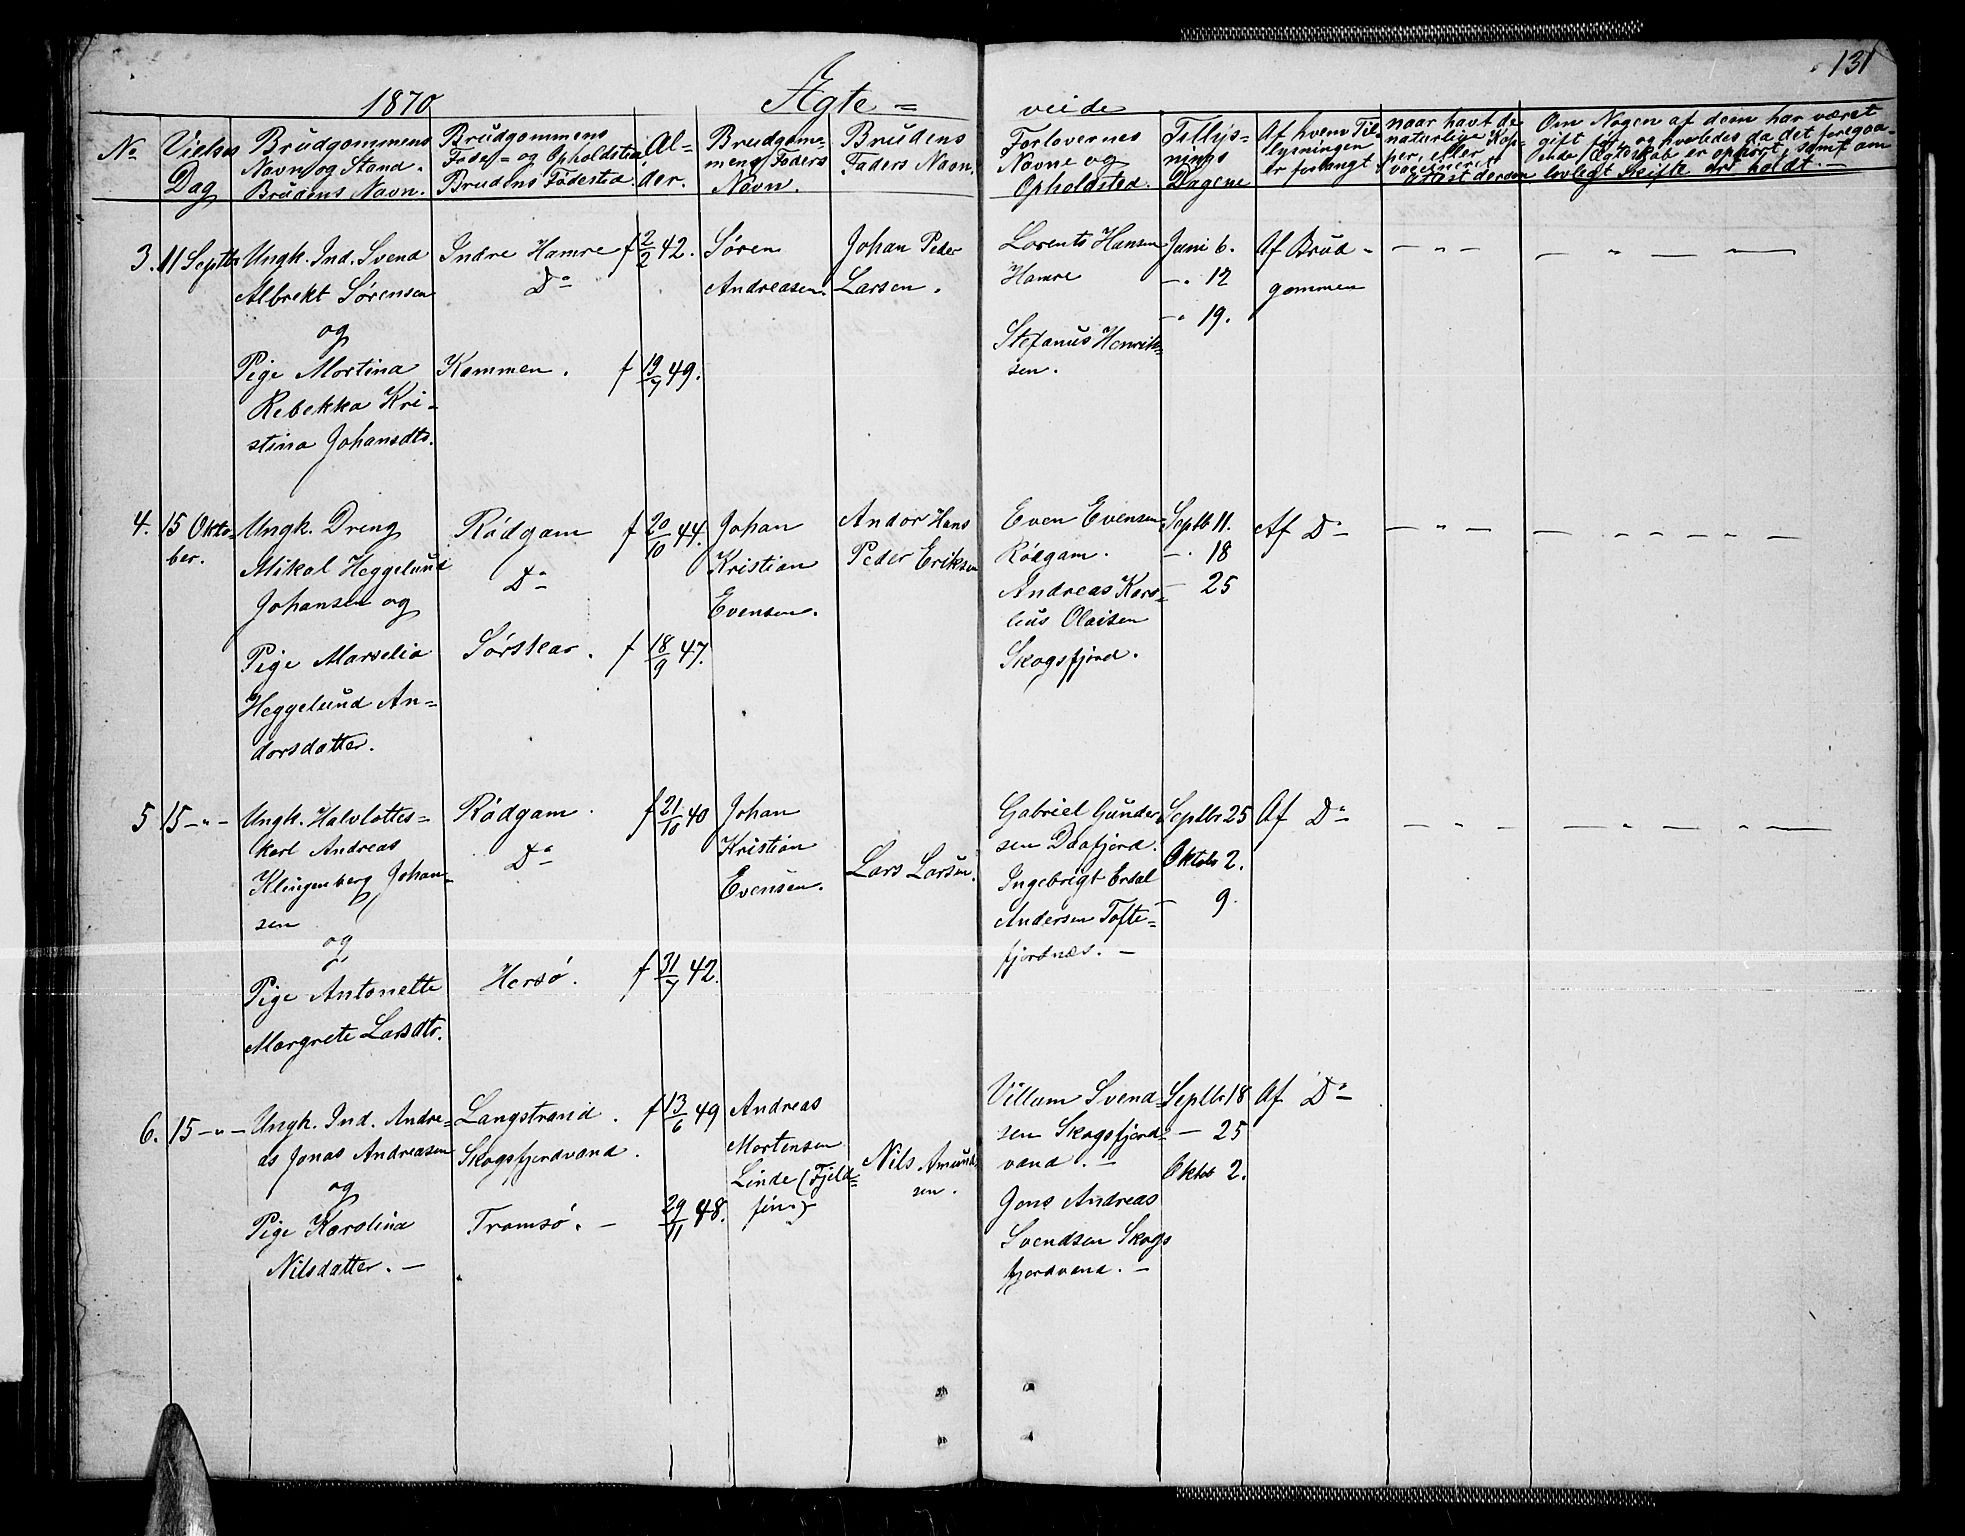 131
1870
Ægte =
viede
No
Vielses
Dag
Brudgommens
Navn og Stand.
Brudens Navn.
Brudgommens
Føde= og Opholdsted
Brudens Fødested.
Al-
der.
Brudgom-
mens Faders
Navn.
Brudens
Faders Navn.
Forlovernes
Navne og
Opholdsted.
Tillys-
nings
Dagene
Af hvem Til-
lysningen
er forlangt
naar havt de
naturlige Kop-
per, eller
vaccineret
Attest derom
Om Nogen af dem har været
gift før, og hvorledes da det foregaa-
ende Ægteskab er ophørt, samt om
lovligt Skifte er holdt. —
3. 11 Septbr
Ungk. Ind. Svend
Albrekt Sørensen
og
Pige Martina
Rebekka Kri-
stina Johansdtr.
Indre Hamre
Do
Kammen.
f 2/2 42.
f 19/7 49.
Søren
Andreasen.
Johan Peder
Larsen.
Lorents Hansen
Hamre
Stefanus Henrik-
sen.
Juni 6.
—. 12
— " 19.
Af Brud-
gommen
— " —
— " — —
4. 15 Okto-
ber.
Ungk. Dreng
Mikal Heggelund
Johansen og
Pige Marselia
Heggelund An=
dorsdatter.
Rødgam
Do
Sørskar.
f 20/10 44.
f 18/9 47.
Johan
Kristian
Evensen.
Andor Hans
Peder Eriksen
Even Evensen
Rødgam.
Andreas Kors-
lius Olaisen
Skogsfjord.
Septb 11.
—. 18
— 25
Af Do
— " —
5 15 — " —
Ungk. Halvlottes=
karl Andreas
Klingenberg Johan-
sen
og
Pige Antonette
Margrete Larsdtr.
Rødgam.
Do
Hersø.
f 21/10 40
f 31/7 42.
Johan
Kristian
Evensen.
Lars Larsen.
Gabriel Gunder
sen Daafjord.
Ingebrigt Erdal
Andersen Tofte=
fjordnæs. —
Septbr 25
Oktob 2.
— 9.
Af Do
— " —
6. 15 — " —
Ungk. Ind. Andre=
as Jonas Andreasen
og
Pige Karolina
Nilsdatter. —
Langstrand.
Skogsfjordvand.
Tromsø. —
f 13/6 49
29/11 48.
Andreas
Mortensen
Linde (Fjeld=
fin.)
Nils Amund-
sen.
Villum Svend
sen Skogsfjord
vand. —
Jens Andreas
Svendsen Skogs
fjordvand. —
Septbr 18
— 25
Oktob 2.
Af Do